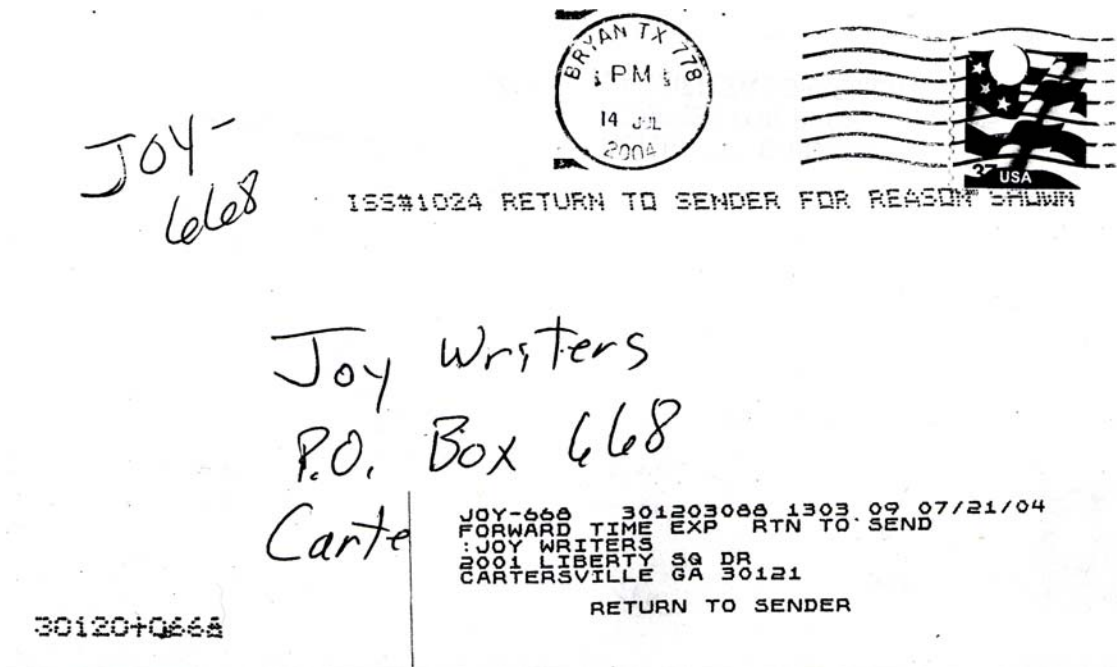 BRYAN TX 778
PM
14 JUL
2004
37 USA
JOY-
668
ISS#1024 RETURN TO SENDER FOR REASON SHOWN
Joy Writers
P.O. Box 668
Carte
JOY-668 301203088 1303 09 07/21/04
FORWARD TIME EXP RTN TO SEND
:JOY WRITERS
2001 LIBERTY SQ DR
CARTERSVILLE GA 30121
RETURN TO SENDER
30120+0668